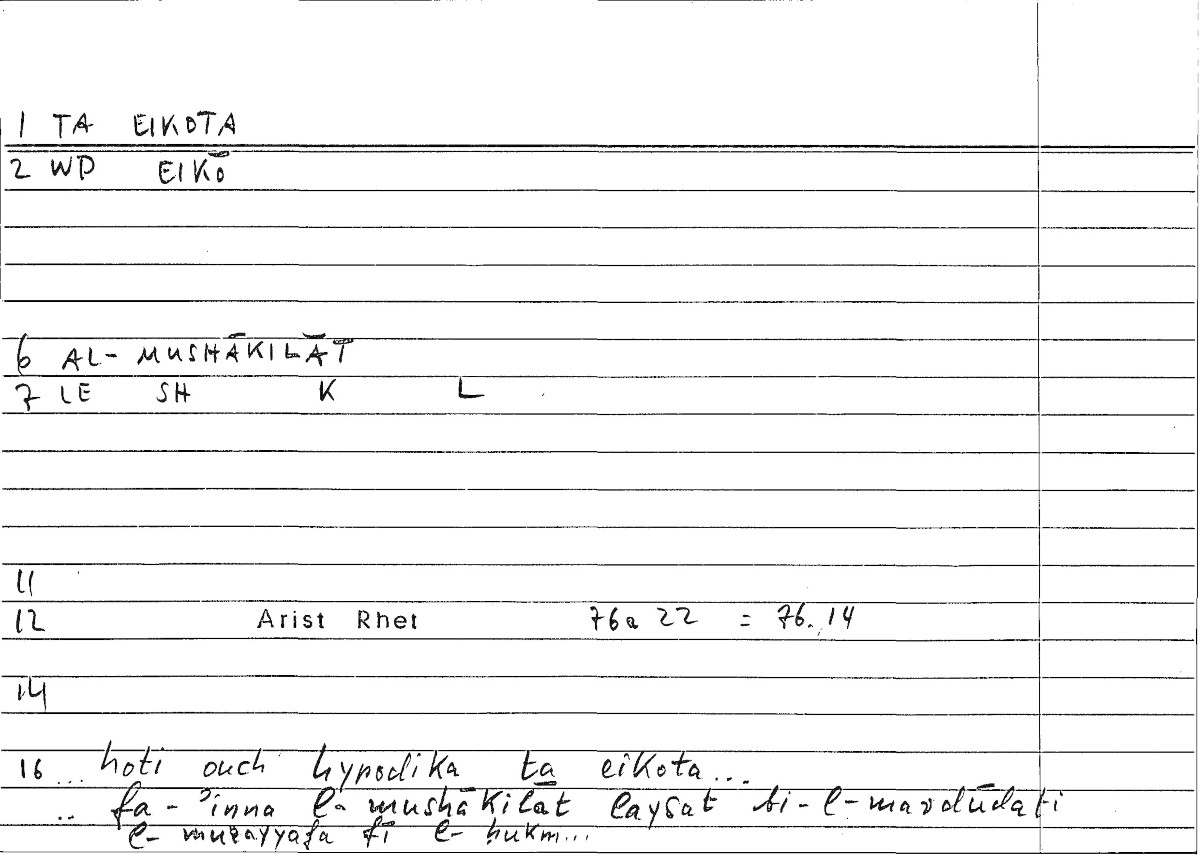 1 TA EIKOTA
2 WP EIKŌ
6 AL-MUSHĀKILĀT
7 LE SH K L
11
12 Arist Rhet 76a 22 = 76.,14
14
16 ... hoti ouch hypodika ta eikota...
.. fa-ʾinna l-mushākilāt laysat bi-l-mardūdati
l-muzayyafa fī l-ḥukm...